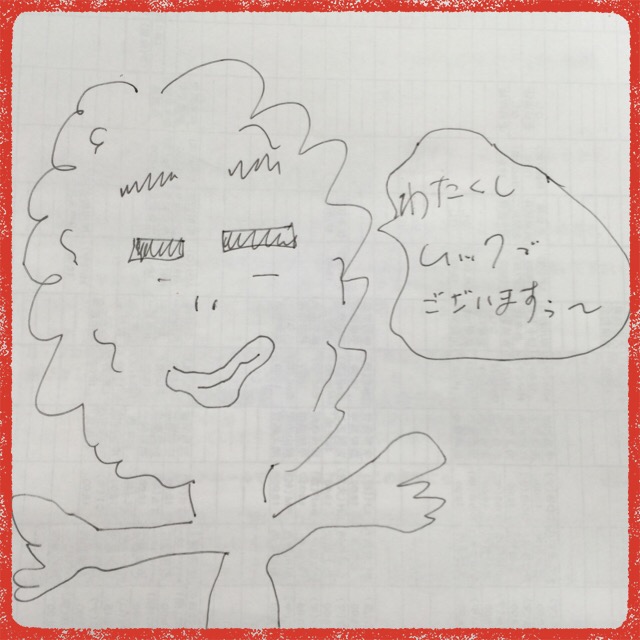 わたくし
ムックで
ございますぅ〜